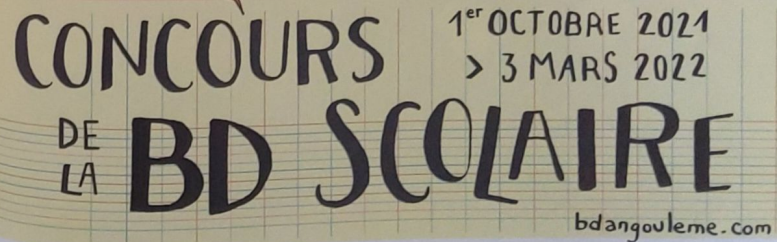 CONCOURS
1er OCTOBRE 2021
> 3 MARS 2022
DE
LA
BD SCOLAIRE
bdangouleme.com